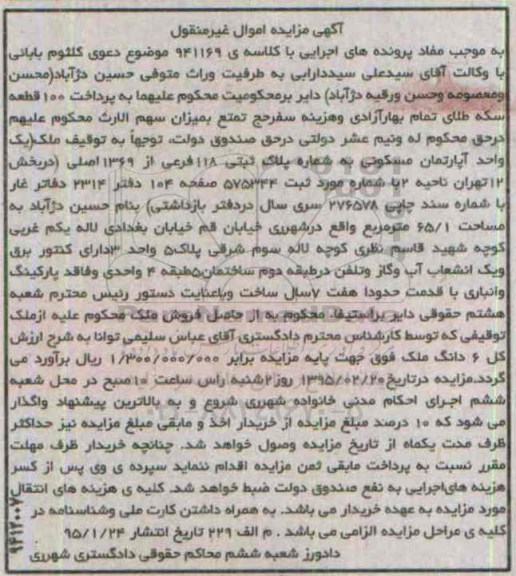 آگهی مزایده اموال غیرمنقول
به موجب مفاد پرونده های اجرایی با کلاسه ی ۹۴۱۱۶۹ موضوع دعوی کلثوم بابائی
با وکالت آقای سیدعلی سیددارابی به طرفیت وراث متوفی حسین دژآباد(محسن
ومعصومه وحسن ورقیه دژآباد) دایر برمحکومیت محکوم علیهما به پرداخت ۱۰۰ قطعه
سکه طلای تمام بهارآزادی وهزینه سفرحج تمتع بمیزان سهم الارث محکوم علیهم
درحق محکوم له ونیم عشر دولتی درحق صندوق دولت، توجهاً به توقیف ملک(یک
واحد آپارتمان مسکونی به شماره پلاک ثبتی ۱۱۸ فرعی از ۱۳۶۹ اصلی (دربخش
۱۲تهران ناحیه ۲با شماره مورد ثبت ۵۷۵۲۴۴ صفحه ۱۰۴ دفتر ۲۳۱۴ دفاتر غار
با شماره سند چاپی ۲۷۶۵۷۸ سری سال دردفتر بازداشتی) بنام حسین دژآباد به
مساحت ۶۵/۱ مترمربع واقع درشهرری خیابان قم خیابان بغدادی لاله یکم غربی
کوچه شهید قاسم نظری کوچه لاله سوم شرقی پلاک۵ واحد ۳دارای کنتور برق
ویک انشعاب آب وگاز وتلفن درطبقه دوم ساختمان۵طبقه ۴ واحدی وفاقد پارکینگ
وانباری با قدمت حدودا هفت ۷سال ساخت وباعنایت دستور رئیس محترم شعبه
هشتم حقوقی دایر براستیفاء محکوم به از حاصل فروش ملک محکوم علیه ازملک
توقیفی که توسط کارشناس محترم دادگستری آقای عباس سلیمی توانا به شرح ارزش
کل ۶ دانگ ملک فوق جهت پایه مزایده برابر ۱/۳۰۰/۰۰۰/۰۰۰ ریال برآورد می
گردد.مزایده درتاریخ۱۳۹۵/۰۲/۲۰ روز ۲شنبه راس ساعت ۱۰صبح در محل شعبه
ششم اجرای احکام مدنی خانواده شهرری شروع و به بالاترین پیشنهاد واگذار
می شود که ۱۰ درصد مبلغ مزایده از خریدار اخذ و مابقی مبلغ مزایده نیز حداکثر
ظرف مدت یکماه از تاریخ مزایده وصول خواهد شد. چنانچه خریدار ظرف مهلت
مقرر نسبت به پرداخت مابقی ثمن مزایده اقدام ننماید سپرده ی وی پس از کسر
هزینه های‌اجرایی به نفع صندوق دولت ضبط خواهد شد. کلیه ی هزینه های انتقال
مورد مزایده به عهده خریدار می باشد. به همراه داشتن کارت ملی وشناسنامه در
کلیه ی مراحل مزایده الزامی می باشد . م الف ۲۲۹ تاریخ انتشار ۹۵/۱/۲۴
دادورز شعبه ششم محاکم حقوقی دادگستری شهرری